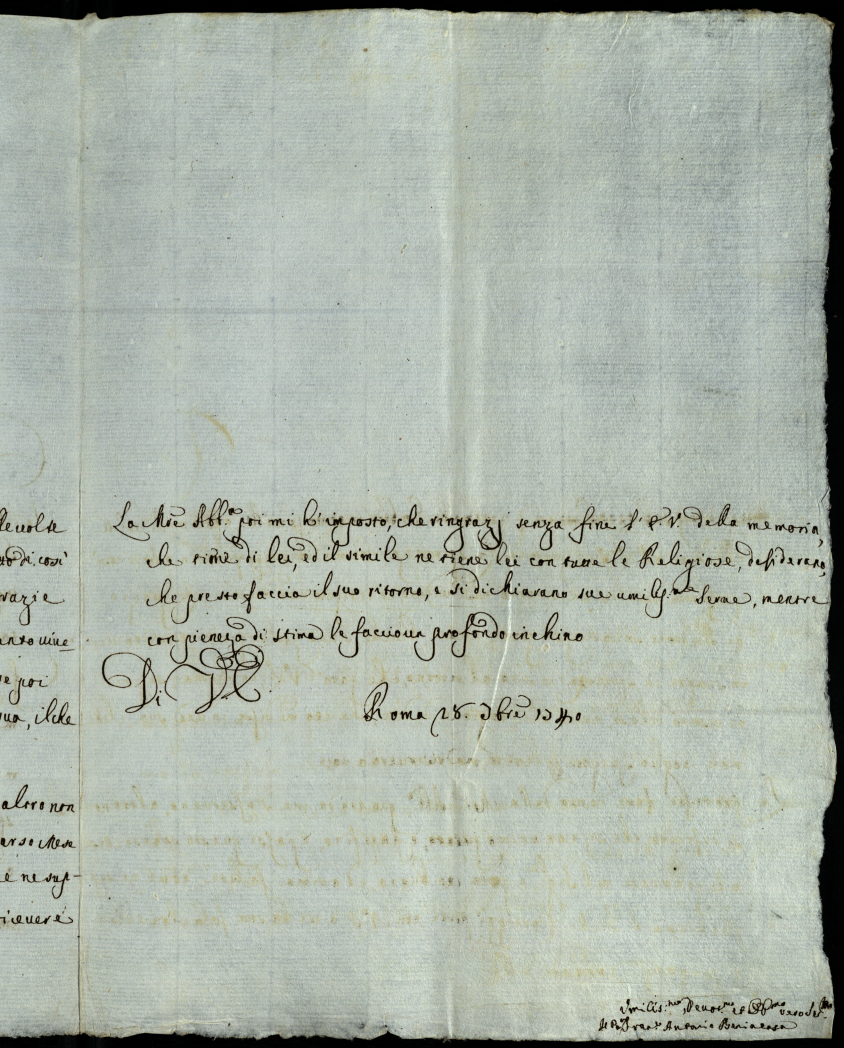 le volte
to di così
grazie
anto vive
se poi
sua, il che
altro non
arso Mese
e ne sup-
ricevere
La Mrē Abb.ᵃ poi mi hà imposto, che ringrazj senza fine V. della memoria,
che tiene di lei, ed il simile ne tiene lei con tutte le Religiose, desiderano,
che presto faccia il suo ritorno, e si dichiarano sue umiliss.ᵐᵉ Serve, mentre
con pienezza di stima le faccio un profondo inchino
Di
Roma 28. Xbrē 1740
Umilis.ᵐᵒ, Devot.ᵐᵒ ed vero Ser.
Fran.ᶜᵒ Antonio